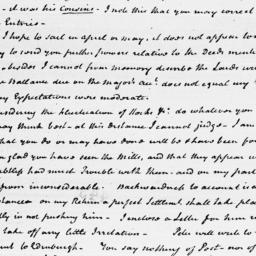 - it was his Cousins - I note this that you may correct
Entries -
I hope to sail in april or may, it does not appear to
to send you further powers relative to the Deeds ment
besides I cannot from memory describe the Lands
Ballance due on the Major's acct. does not equal my
my Expectations were moderate.
dering the fluctuation of Stocks &c. do whatever you
may think best - at this distance I cannot judge - I am
that you do or may have done will be & have been for
glad you have seen the Mills, and that they appear
had much Trouble with them - and on my part
from inconsiderable. Backwardness to account is a
on my Return a perfect Settlemt. shall take place
is not pushing him - I inclose a Letter for him
take off any little Irritation - Peter will write to
to Edinburgh - You say nothing of Post - nor of